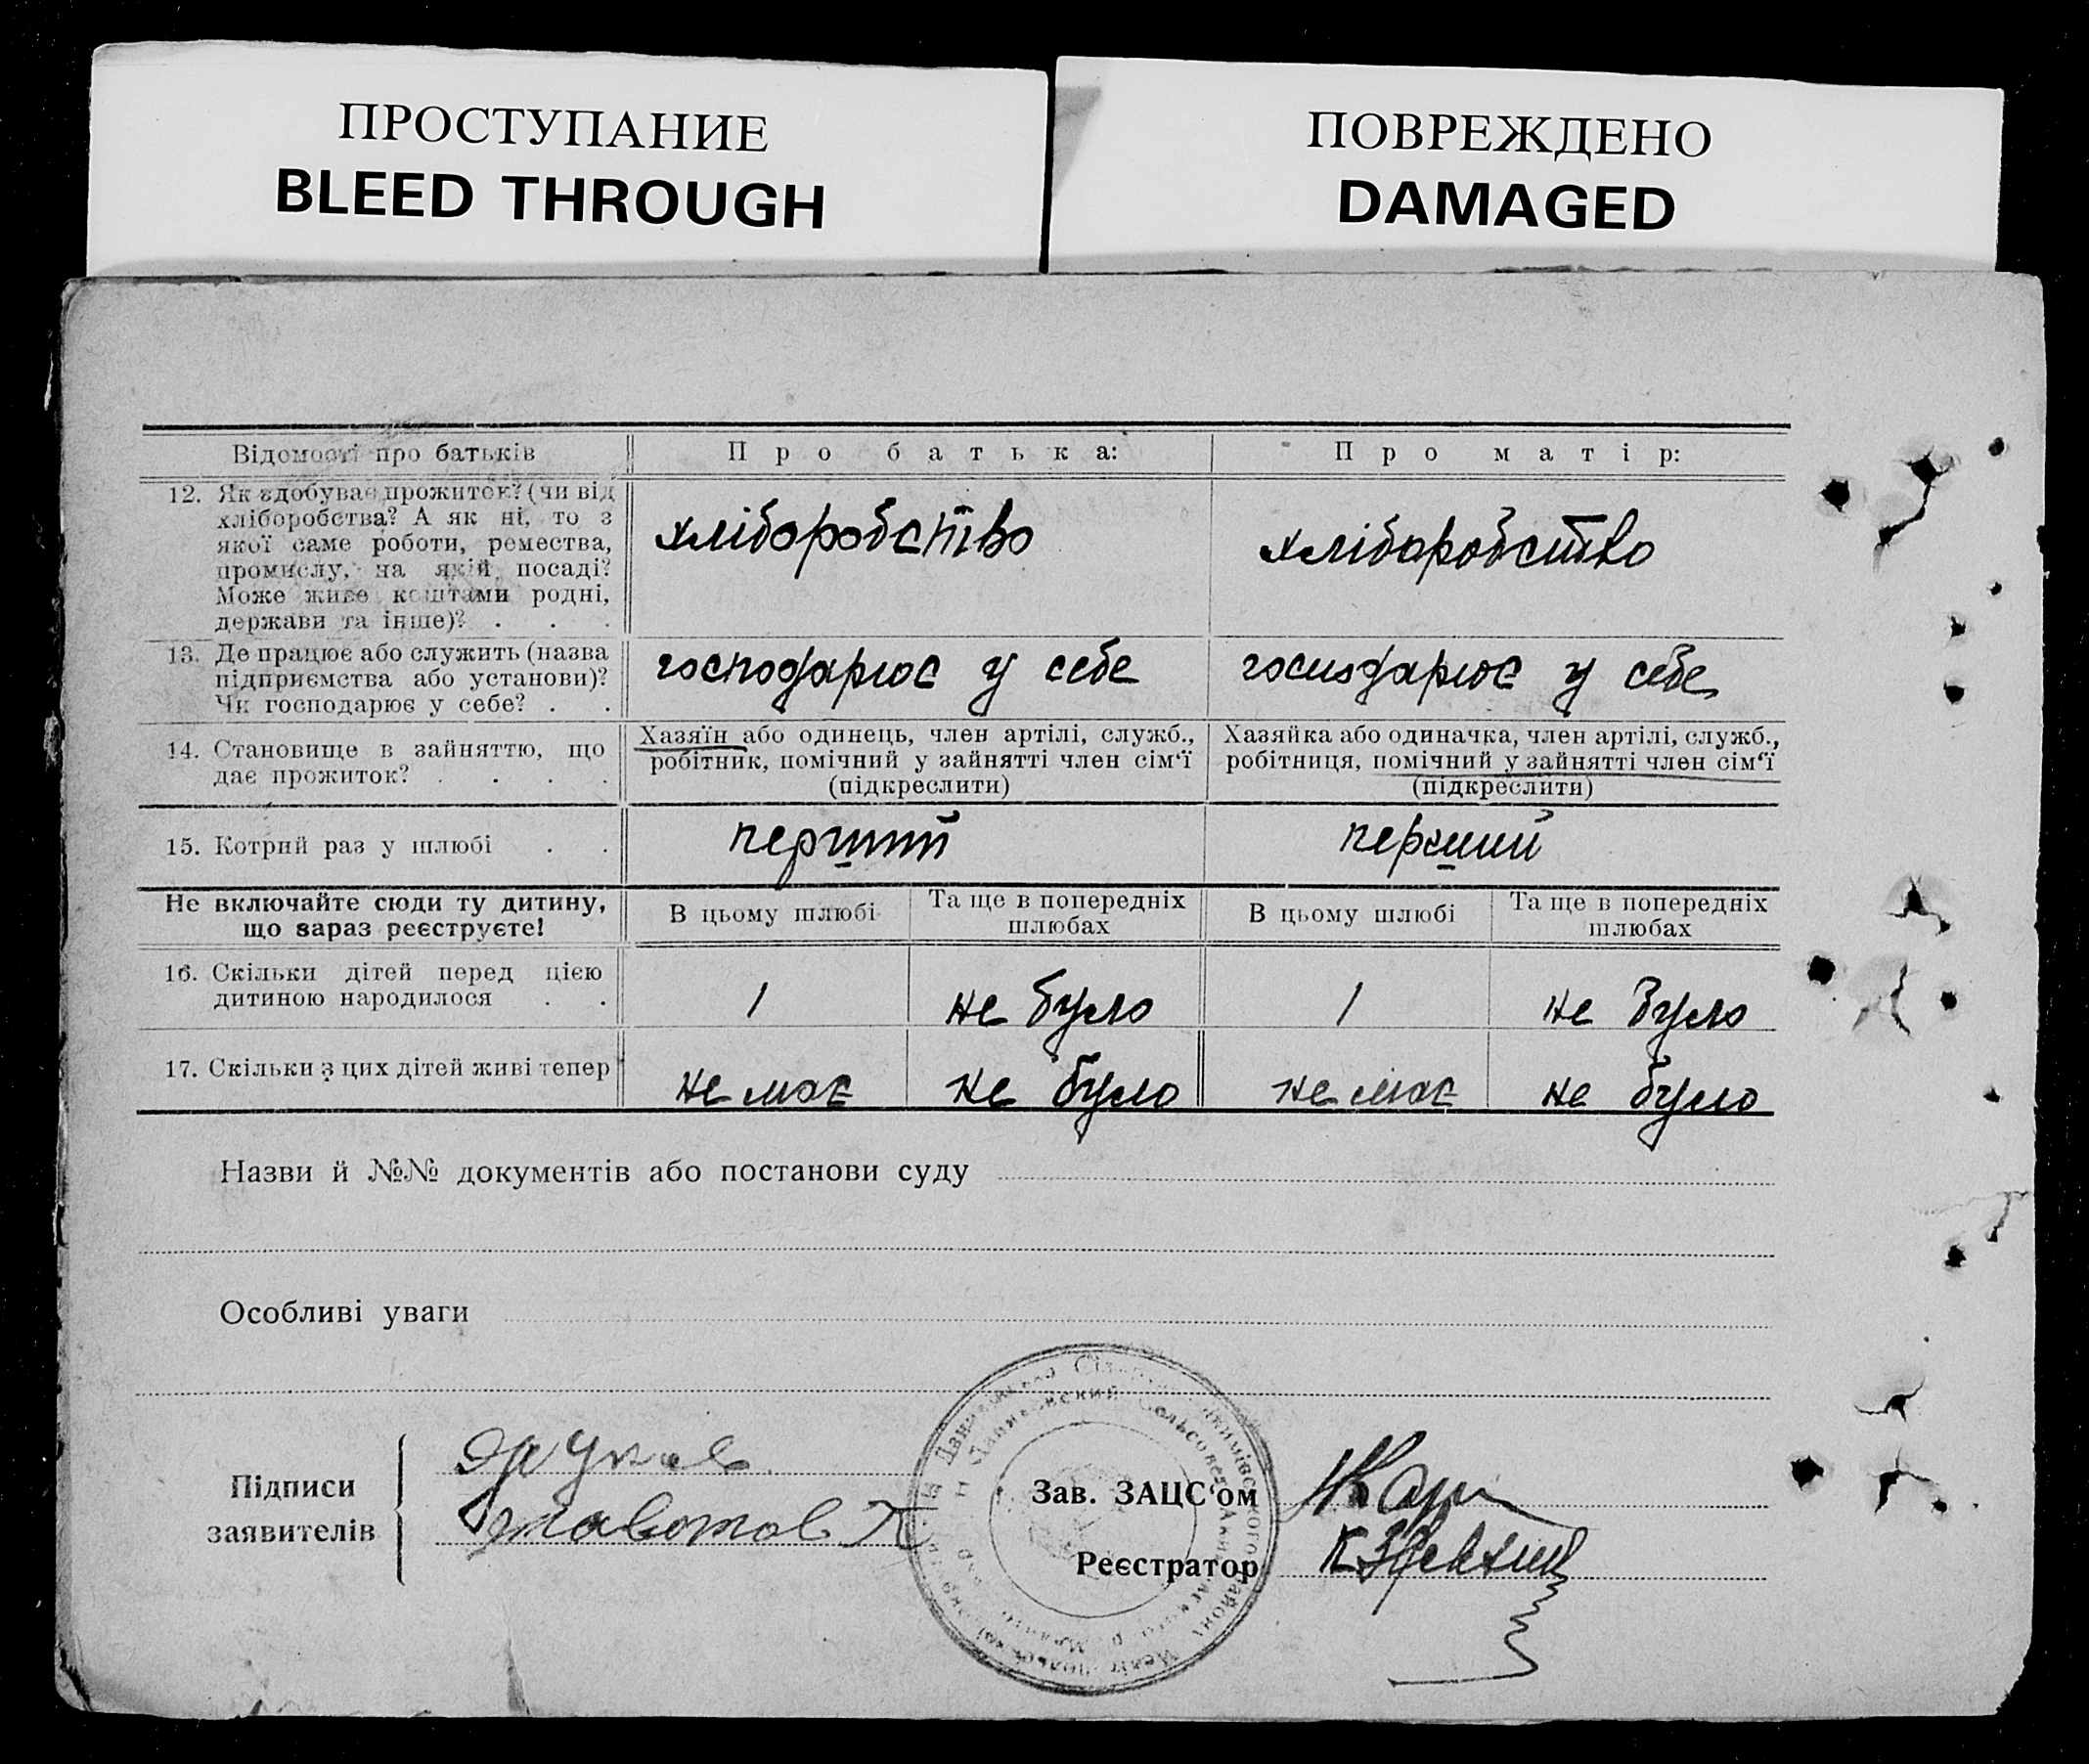 ПРОСТУПАНИЕ
BLEED THROUGH
ПОВРЕЖДЕНО
DAMAGED
Відомості про батьків
Про батька:
Про матір:
12. Як здобуває прожиток? (чи від
хліборобства? А як ні, то з
якої саме роботи, ремества,
промислу, на якій посаді?
Може живе коштами родні,
держави та інше)? . . .
хліборобство
хліборобство
13. Де працює або служить (назва
підприємства або установи)?
Чи господарює у себе? . .
господарює у себе
господарює у себе
14. Становище в зайняттю, що
дає прожиток? . . . .
Хазяїн або одинець, член артілі, служб.,
робітник, помічний у зайнятті член сім‘ї
(підкреслити)
Хазяйка або одиначка, член артілі, служб.,
робітниця, помічний у зайнятті член сім‘ї
(підкреслити)
15. Котрий раз у шлюбі . .
перший
перший
Не включайте сюди ту дитину,
що зараз реєструєте!
В цьому шлюбі
Та ще в попередніх
шлюбах
В цьому шлюбі
Та ще в попередніх
шлюбах
16. Скільки дітей перед цією
дитиною народилося . .
1
не було
1
не було
17. Скільки з цих дітей живі тепер
немає
не було
немає
не було
Назви й №№ документів або постанови суду
Особливі уваги
Підписи
заявителів
Зав. ЗАЦС‘ом
Реєстратор